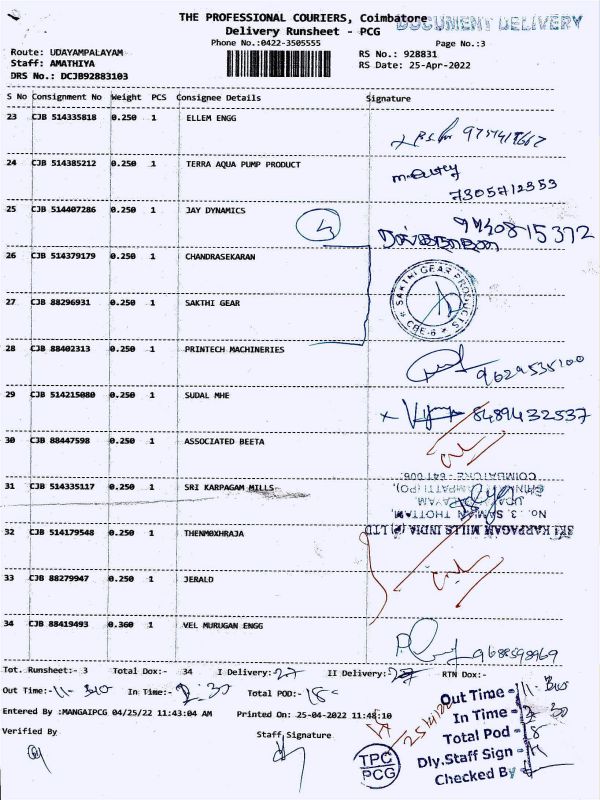 THE PROFESSIONAL COURIERS, Coimbatore
DOCUMENT DELIVERY
Delivery Runsheet - PCG
Phone No.:0422-3505555
Page No.:3
Route: UDAYAMPALAYAM
RS No.: 928831
Staff: AMATHIYA
RS Date: 25-Apr-2022
DRS No.: DCJB92883103
S No Consignment No Weight PCS Consignee Details Signature
23 CJB 514335818 0.250 1 ELLEM ENGG
24 CJB 514385212 0.250 1 TERRA AQUA PUMP PRODUCT
7305712353
25 CJB 514407286 0.250 1 JAY DYNAMICS
26 CJB 514379179 0.250 1 CHANDRASEKARAN
27 CJB 88296931 0.250 1 SAKTHI GEAR
SAKTHI GEAR PRODUCTS
CBE-6
28 CJB 88402313 0.250 1 PRINTECH MACHINERIES
9629535100
29 CJB 514215080 0.250 1 SUDAL MHE
8489432537
30 CJB 88447598 0.250 1 ASSOCIATED BEETA
31 CJB 514335117 0.250 1 SRI KARPAGAM MILLS
COIMBATORE - 641 006.
NO. : 3, SAMAN THOTTAM,
SRI KARPAGAM MILLS INDIA (P) LTD
32 CJB 514179548 0.250 1 THENMOXHRAJA
33 CJB 88279947 0.250 1 JERALD
34 CJB 88419493 0.360 1 VEL MURUGAN ENGG
9688598969
Tot. Runsheet:- 3 Total Dox:- 34 I Delivery:- 27 II Delivery:- 27 RTN Dox:-
Out Time:- In Time:- Total POD:- 18
Entered By :MANGAIPCG 04/25/22 11:43:04 AM Printed On: 25-04-2022 11:48:10
Verified By
Staff Signature
TPC
PCG
Out Time -
In Time -
Total Pod -
Dly.Staff Sign -
Checked By